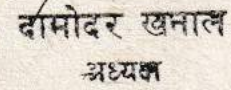 दामोदर खनाल
अध्यक्ष